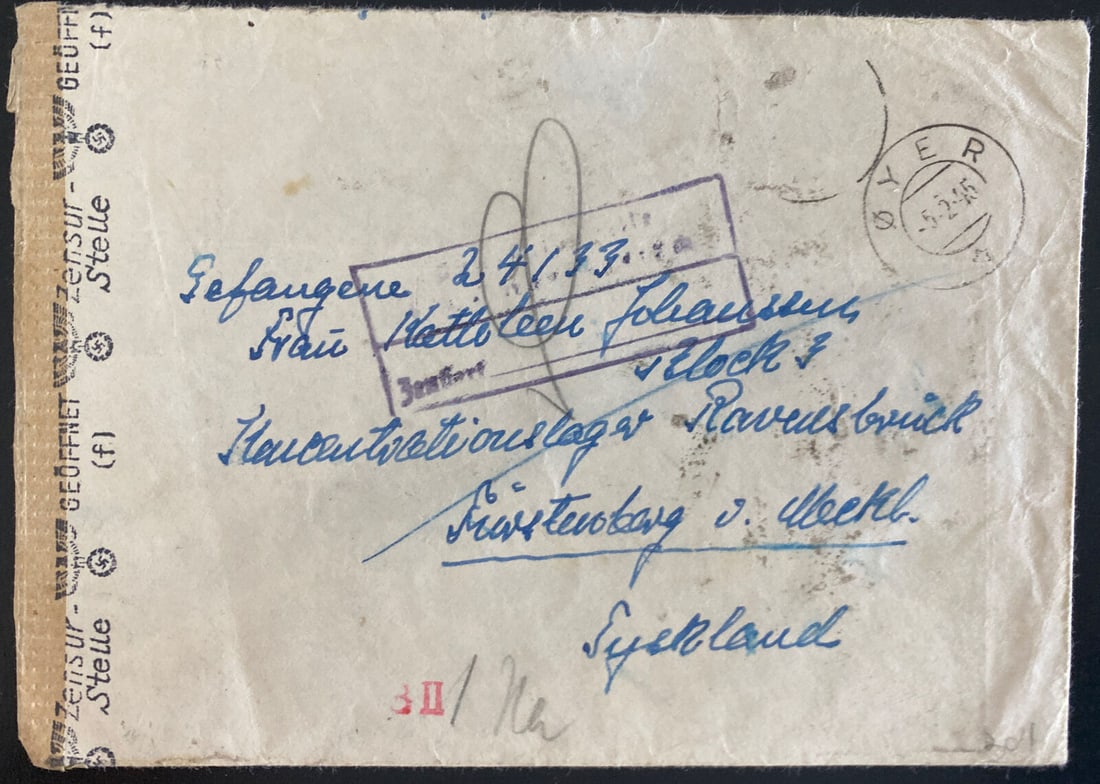 GEÖFFNET
(f)
Zensur-
Stelle
GEÖFFNET
(f)
Zensur-
Stelle
ØYER
-5.2.45
Gefangene 24133
Frau Kathleen Johanssen,
Block 3
Koncentrationslager Ravensbrück
Fürstenberg v. Meckl.
Tyskland
Zensiert
II